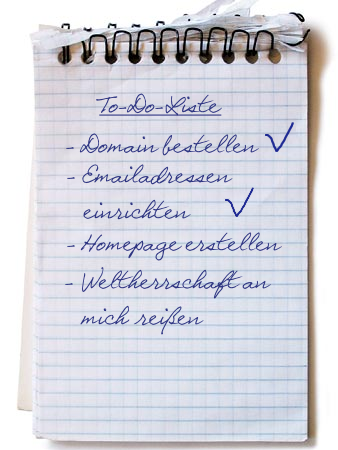 To-Do-Liste
- Domain bestellen ✓
- Emailadressen
einrichten ✓
- Homepage erstellen
- Weltherrschaft an
mich reißen